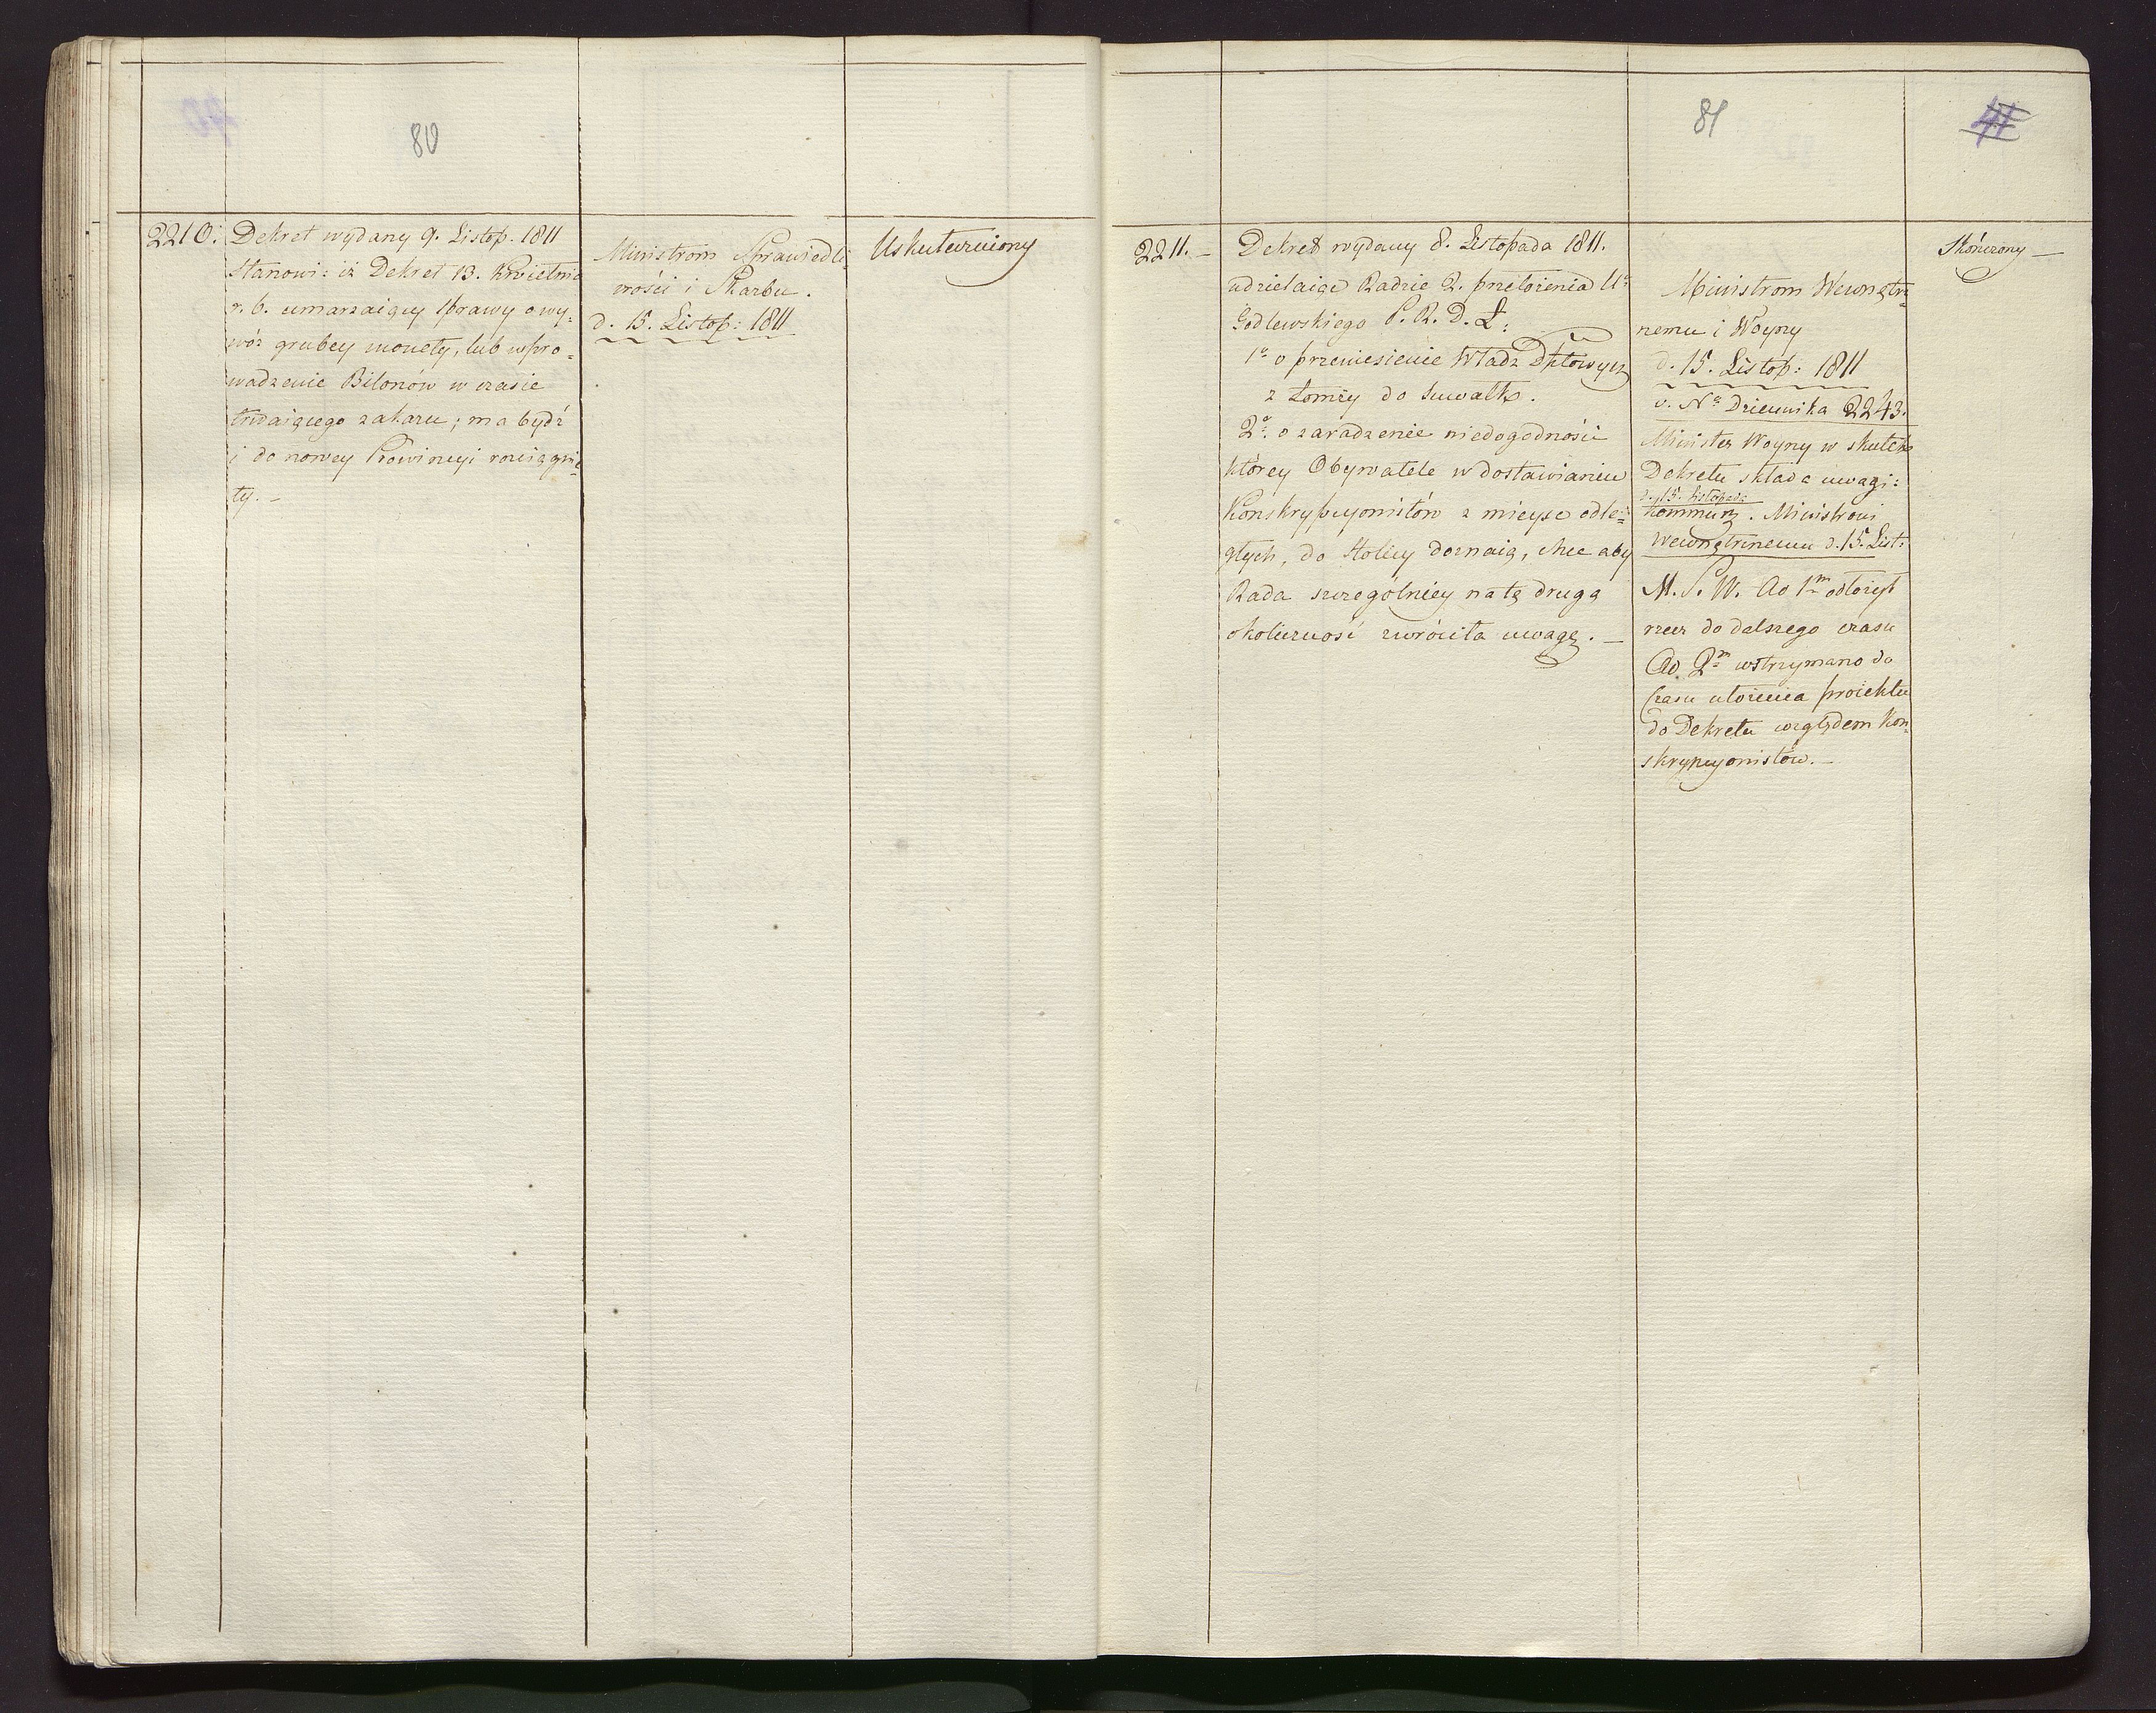 80
2210: Dekret wydany 9. Listop. 1811
Stanowi: iż Dekret 13. Kwietnia
r. b. umarzaiący sprawy o wy=
wóz grubey monety, lub wpro=
wadzenie Bilonów w czasie
trwaiącego zakazu; ma bydź
i do nowey Prowincyi rozciągnię=
ty. —
Ministrom Sprawiedli=
wości i Skarbu.
d. 15. Listop: 1811
Uskuteczniony
81
41
2211. —
Dekret wydany 8. Listopada 1811.
udzielaiąc Radzie 2. przełożenia Ur
Godlewskiego P. R. D. Ł:
1o o przeniesienie Władz Dptowych
z Łomży do Suwałk.
2o. o zaradzenie niedogodności
którey Obywatele w dostawianiu
Konskrypcyonistów z mieysc odle=
głych, do Stolicy doznaią, chce aby
Rada szczególniey na tę drugą
okoliczność zwróciła uwagę. —
Ministrom Wewnętrz
nemu i Woyny
d. 15. Listop: 1811
v. No Dziennika 2243.
Minister Woyny w skutek
Dekretu składa uwagi:
d. 15. listopada
kommunik. Ministrowi
Wewnętrznemu d. 15. List:
M. S. W. Ad 1m odłożył
rzecz do dalszego czasu
Ad. 2m wstrzymano do
czasu ułożenia proiektu
do Dekretu względem Kon=
skrypcyonistów. —
Skończony —